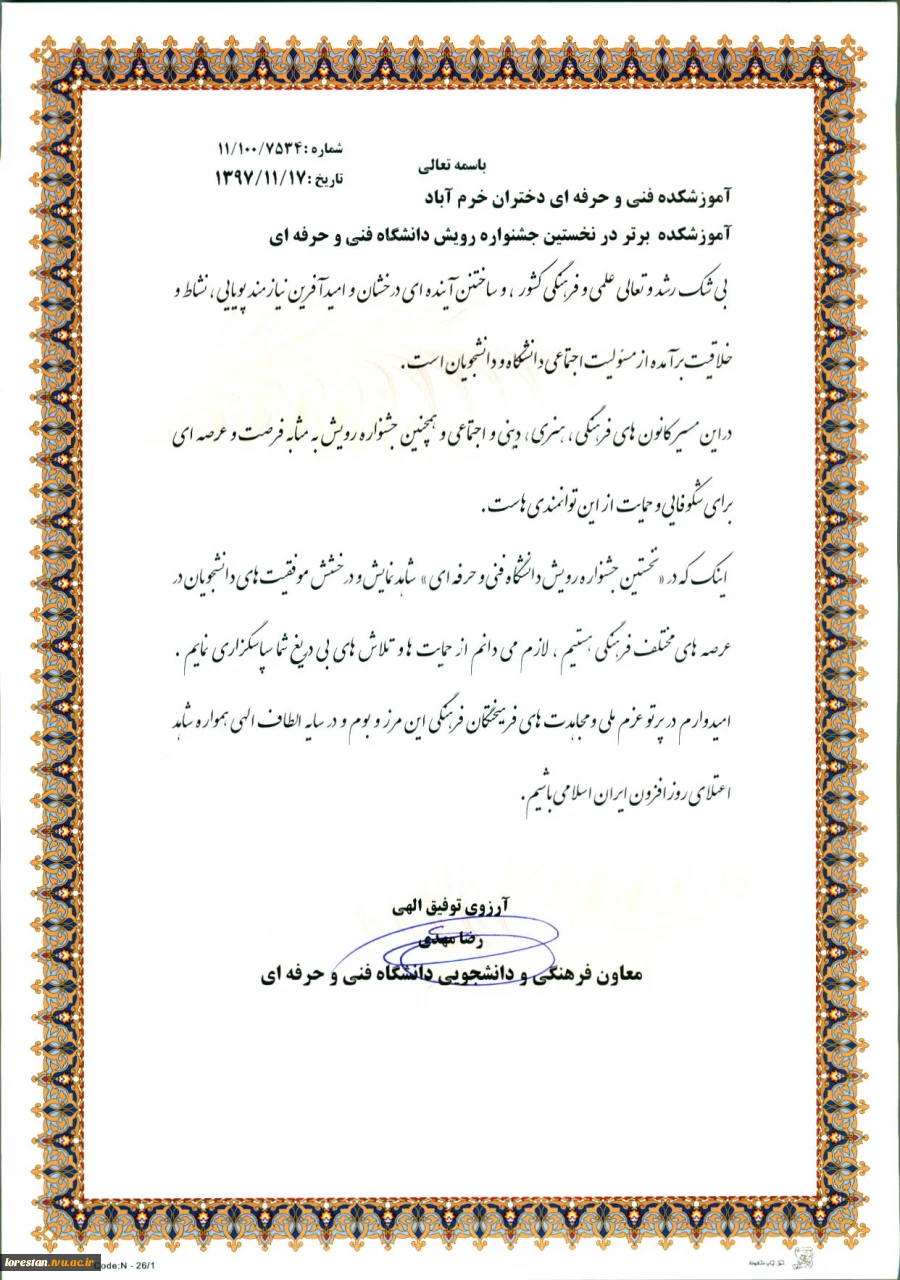 شماره :۱۱/۱۰۰/۷۵۳۴
باسمه تعالی
تاریخ :۱۳۹۷/۱۱/۱۷
آموزشکده فنی و حرفه ای دختران خرم آباد
آموزشکده برتر در نخستین جشنواره رویش دانشگاه فنی و حرفه ای
بی شک رشد و تعالی علمی و فرهنگی کشور ، و ساختن آینده ای درخشان و امیدآفرین نیازمند پویایی ، نشاط و
خلاقیت برآمده از مسئولیت اجتماعی دانشگاه و دانشجویان است.
در این مسیر کانون های فرهنگی ، هنری ، دینی و اجتماعی و همچنین جشنواره رویش به مثابه فرصت و عرصه ای
برای شکوفایی و حمایت از این توانمندی هاست .
اینک که در «نخستین جشنواره رویش دانشگاه فنی و حرفه ای» شاهد نمایش و درخشش موفقیت های دانشجویان در
عرصه های مختلف فرهنگی هستیم ، لازم می دانم از حمایت ها و تلاش های بی دریغ شما سپاسگزاری نمایم .
امیدوارم در پرتو عزم ملی و مجاهدت های فرهیختگان فرهنگی این مرز و بوم و در سایه الطاف الهی همواره شاهد
اعتلای روز افزون ایران اسلامی باشیم .
آرزوی توفیق الهی
رضا مهدی
معاون فرهنگی و دانشجویی دانشگاه فنی و حرفه ای
lorestan.tvu.ac.ir
Code:N - 26/1